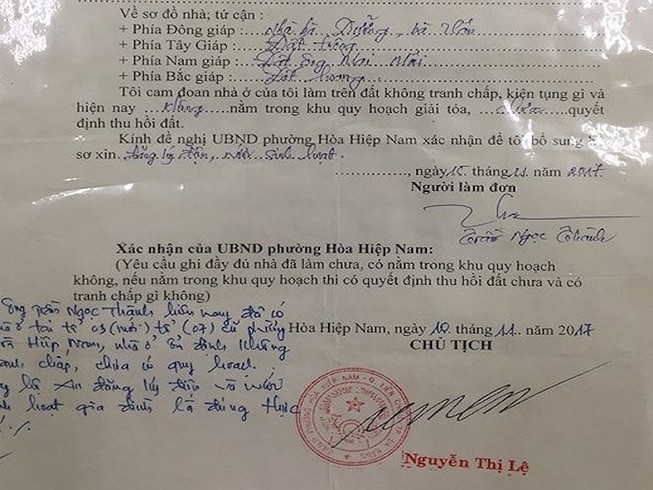 Về sơ đồ nhà; tứ cận :
+ Phía Đông giáp : Nhà bà Dưỡng, bà Vấn
+ Phía Tây Giáp : Đất trống
+ Phía Nam giáp : Đất ông Mai
+ Phía Bắc giáp : Đất hoang
Tôi cam đoan nhà ở của tôi làm trên đất không tranh chấp, kiện tụng gì và
hiện nay không nằm trong khu quy hoạch giải tỏa, chưa quyết
định thu hồi đất.
Kính đề nghị UBND phường Hòa Hiệp Nam xác nhận để tôi bổ sung
sơ xin đăng ký điện, nước sinh hoạt.
, ngày 15 tháng 11 năm 2017
Người làm đơn
Trần Ngọc Thành
Xác nhận của UBND phường Hòa Hiệp Nam:
(Yêu cầu ghi đầy đủ nhà đã làm chưa, có nằm trong khu quy hoạch
không, nếu nằm trong khu quy hoạch thì có quyết định thu hồi đất chưa và có
tranh chấp gì không)
Ông Trần Ngọc Thành hiện nay đã có
nhà ở tại tổ 03 (mới) tổ (07) cũ phường
Hòa Hiệp Nam, nhà ở ổn định không
tranh chấp, chưa có quy hoạch.
đăng ký điện và nước
sinh hoạt gia đình là đúng thực
Hòa Hiệp Nam, ngày 10 tháng 11 năm 2017
CHỦ TỊCH
Nguyễn Thị Lệ